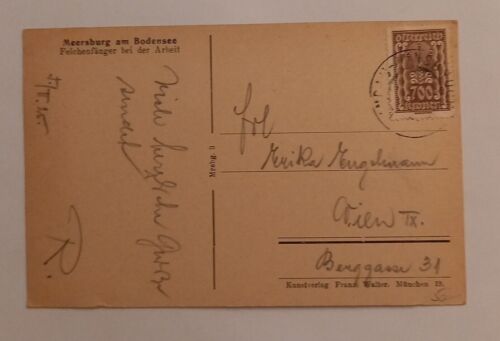 Meersburg am Bodensee
Felchenfänger bei der Arbeit
Viele herzliche Grüße
sendet
R.
Mrsbg. D
700
Frl
Erika Engelmann
Wien IX.
Berggasse 31
Kunstverlag Franz Walter, München 19.